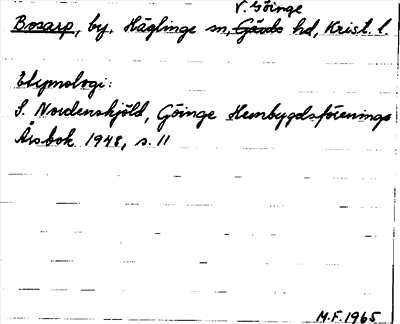 V. Göinge
Bosarp, by, Häglinge sn, Gärds hd, Krist. l.
Etymologi:
S. Nordenskjöld, Göinge Hembygdsförenings
Årsbok 1948, s. 11
M.F. 1965